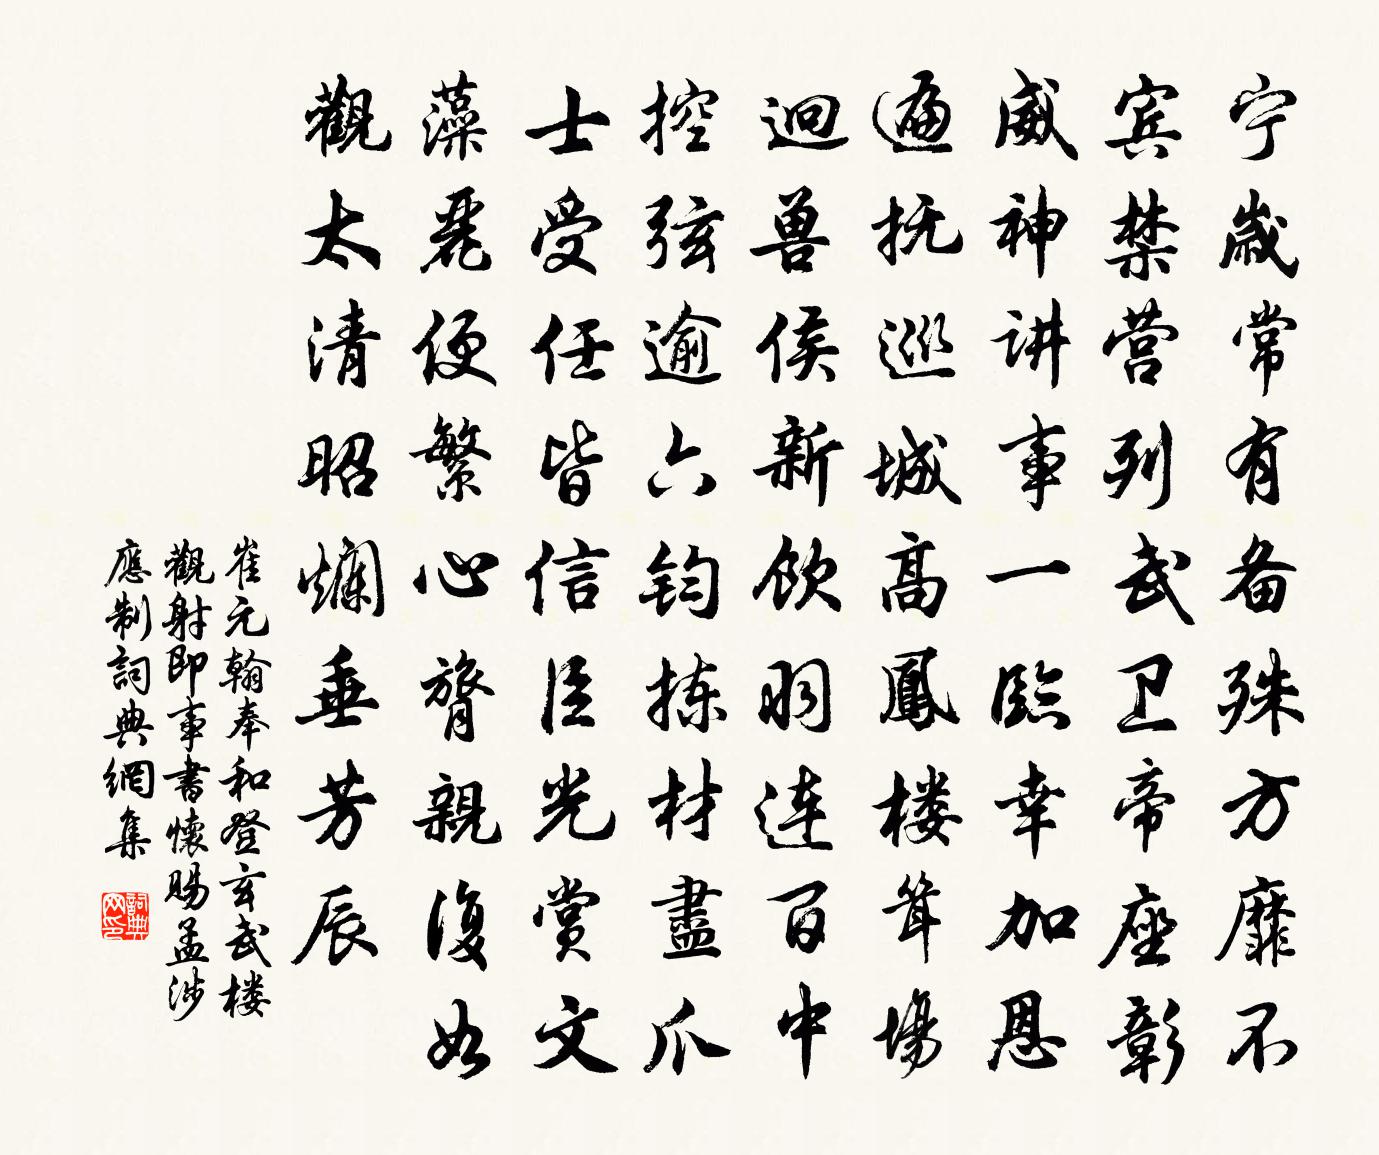 宁岁常有备殊方靡不
宾禁营列武卫帝座彰
威神讲事一临幸加恩
遍抚巡城高鳳楼耸場
迥兽侯新饮羽连百中
控弦逾六钧拣材盡爪
士受任皆信臣光赏文
藻麗便繁心膂親復如
觀太清昭爛垂芳辰
崔元翰奉和登玄武楼
觀射即事書懷賜孟涉
應制詞典網集
詞典
网印